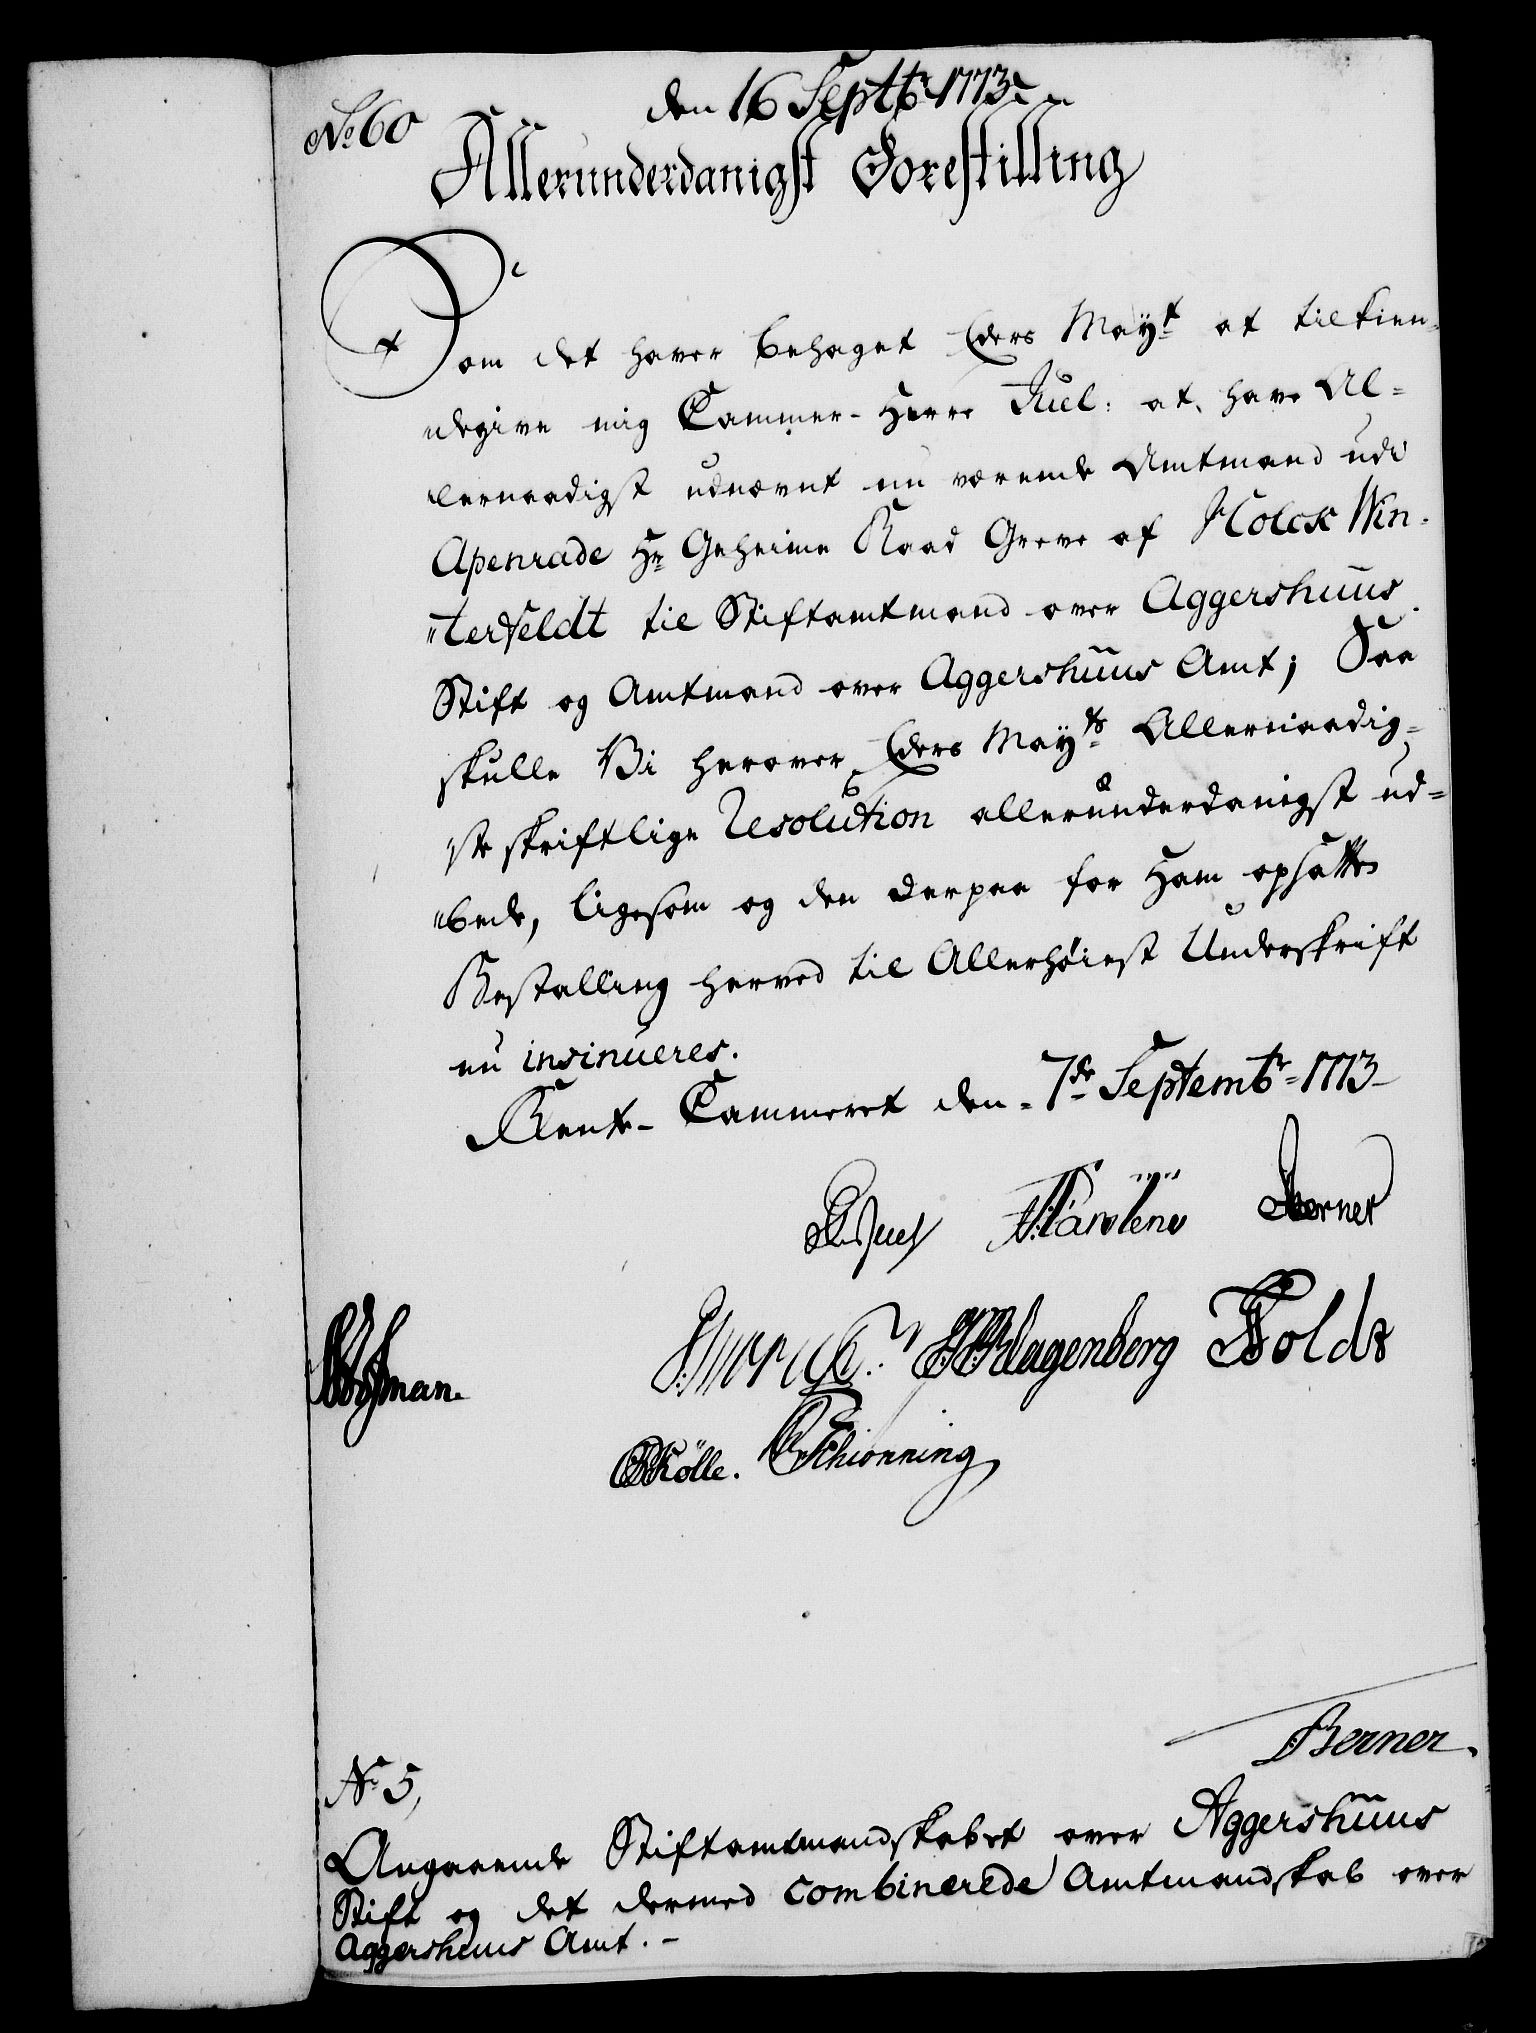 No 60
den 16 Septbr 1773
Allerunderdanigst Forestilling
Som det haver behaget Eders Mayt at tilkien-
degive mig Cammer-Herre Juel: at have Al-
lernaadigst udnævnt nu værende Amtmand udi
Apenrade Hr Geheime Raad Greve af Holck Win-
"terfeldt til Stiftamtmand over Aggershuus
Stift og Amtmand over Aggershuus Amt; Saa
skulle Vi herover Eders Mayts Allernaadig-
ste skriftlige Resolution allerunderdanigst ud-
"bede, ligesom og den derpaa for Ham opsatte
Bestalling herved til Allerhøiest Underskrift
nu insinueres.
Rente-Cammeret den 7de Septembr 1773
Juel Bærner
Klagenberg Holdt
Kölle. Schionning
Berner.
No 5,
Angaaende Stiftamtmandskabet over Aggershuus
Stift og det dermed combinerede Amtmandskab over
Aggershuus Amt.-